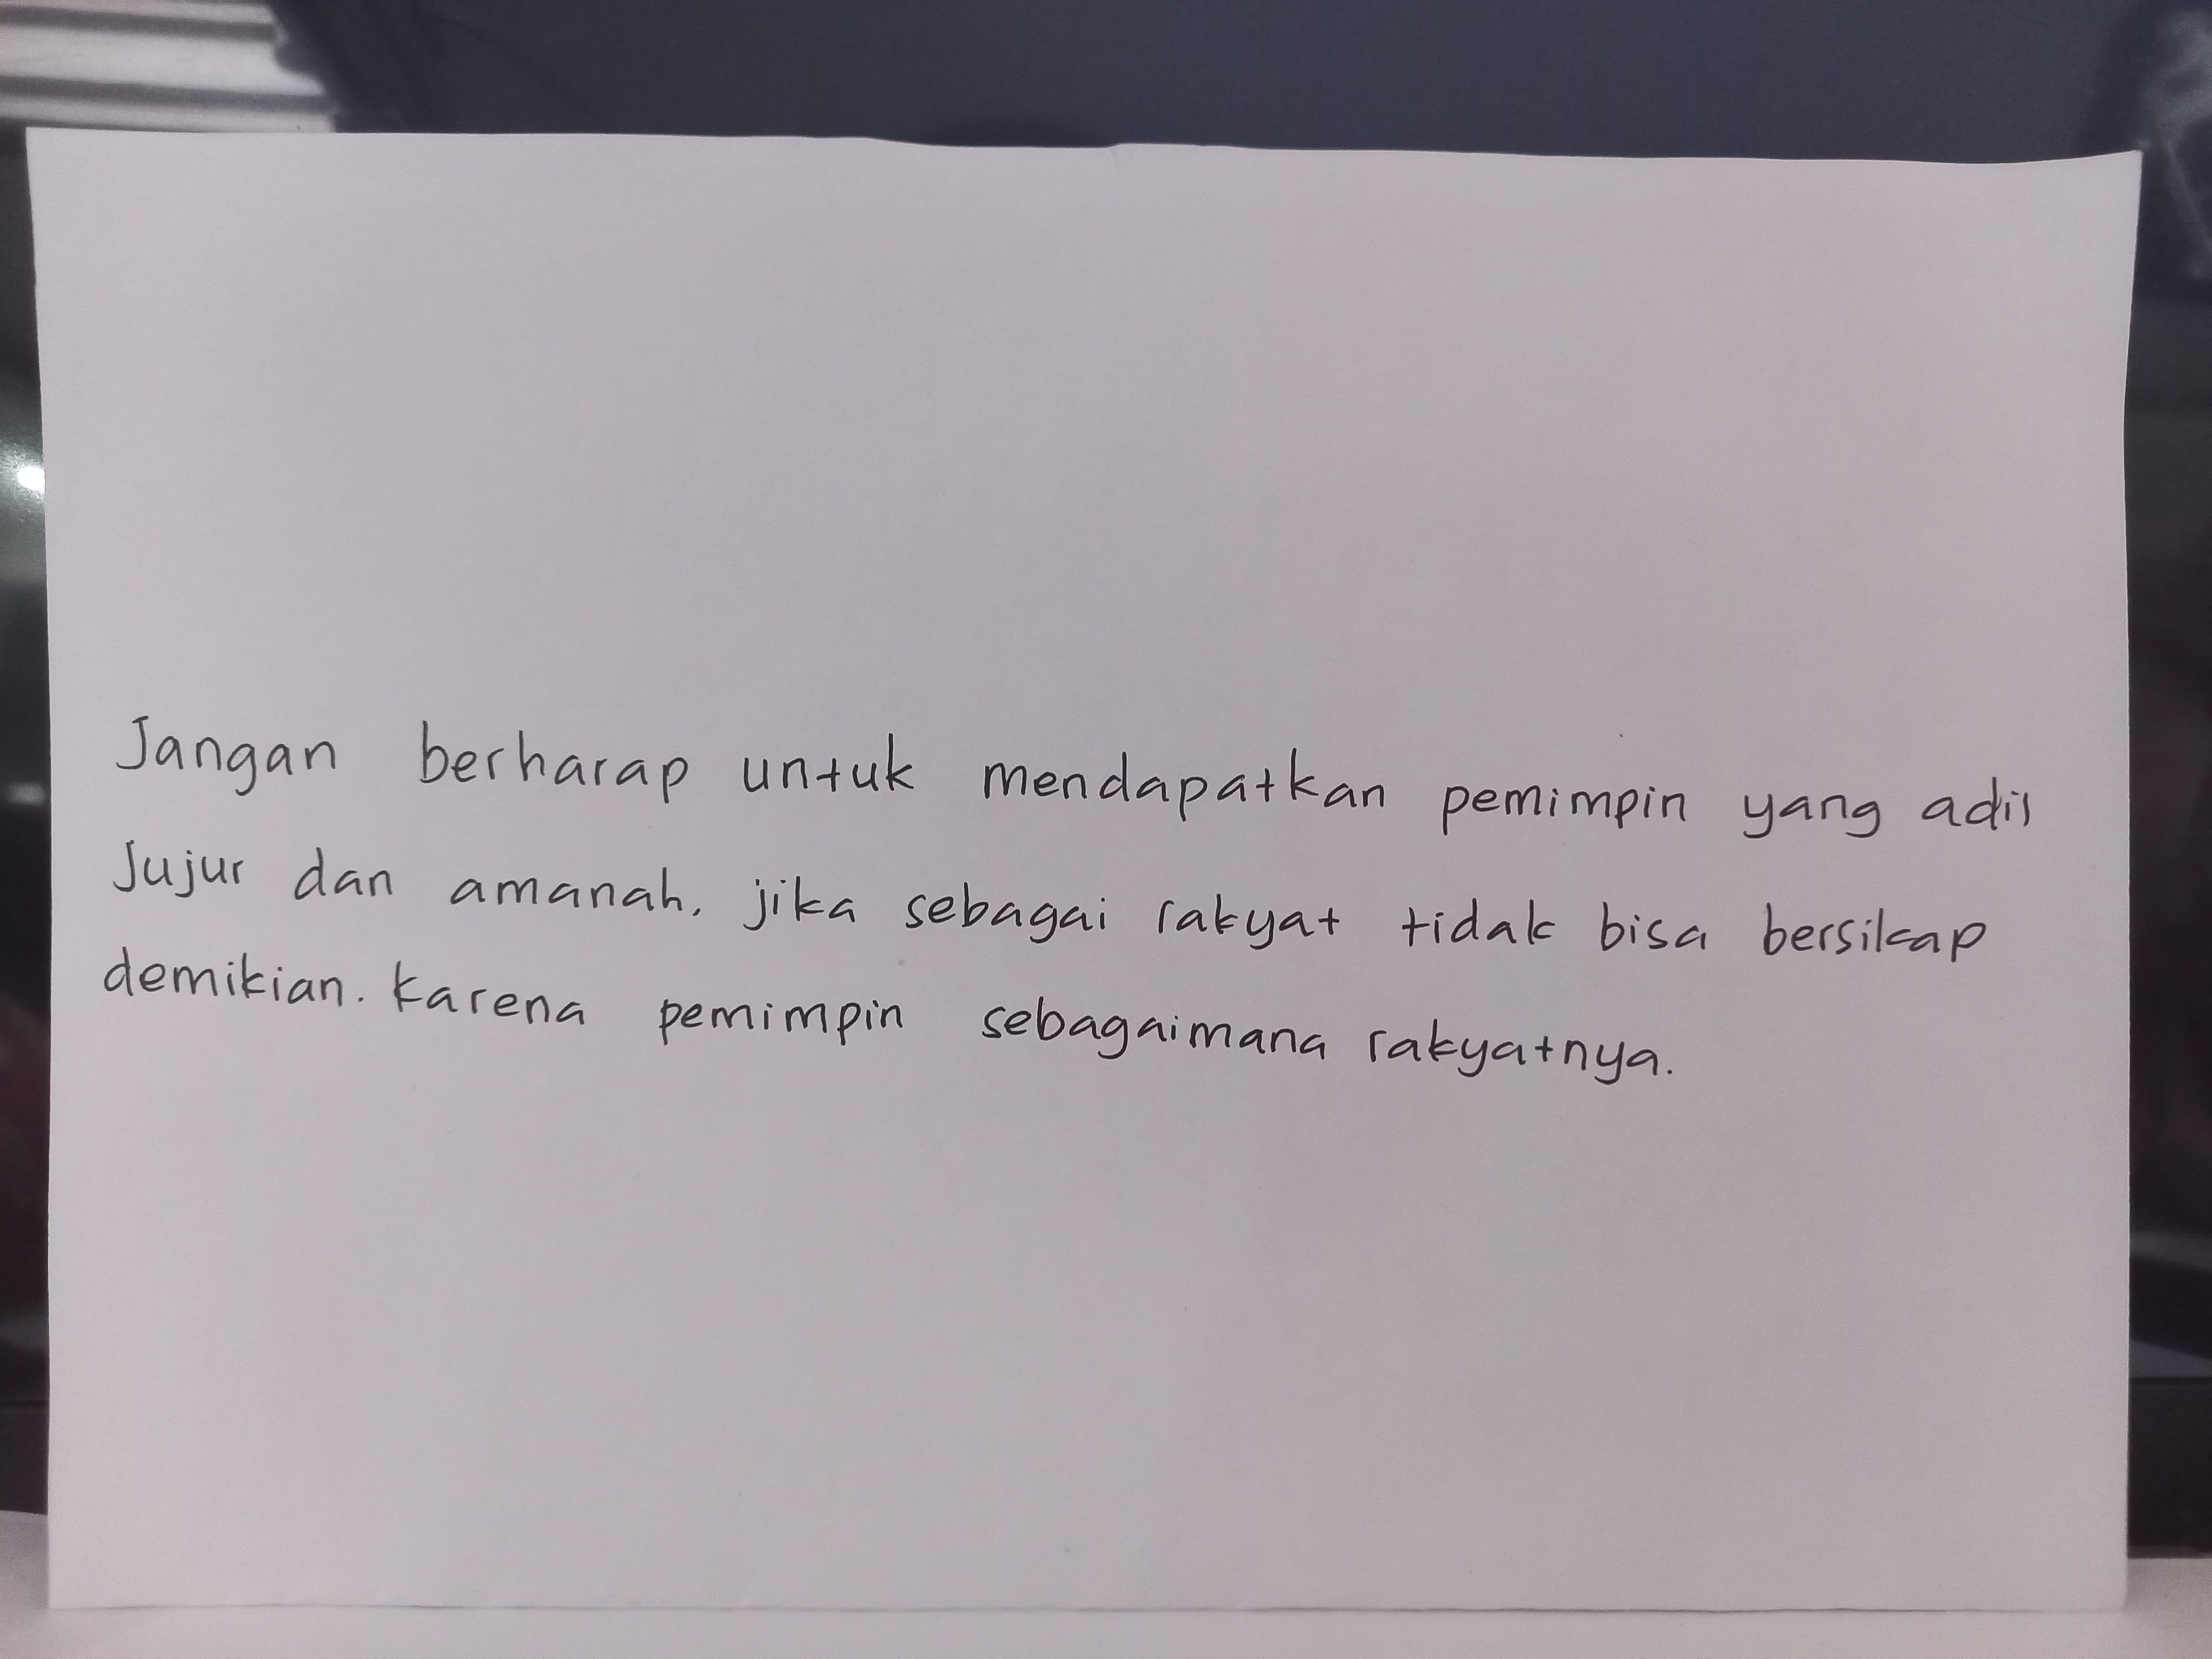 Jangan berharap untuk mendapatkan pemimpin yang adil
Jujur dan amanah, jika sebagai rakyat tidak bisa bersikap
demikian. Karena pemimpin sebagaimana rakyatnya.